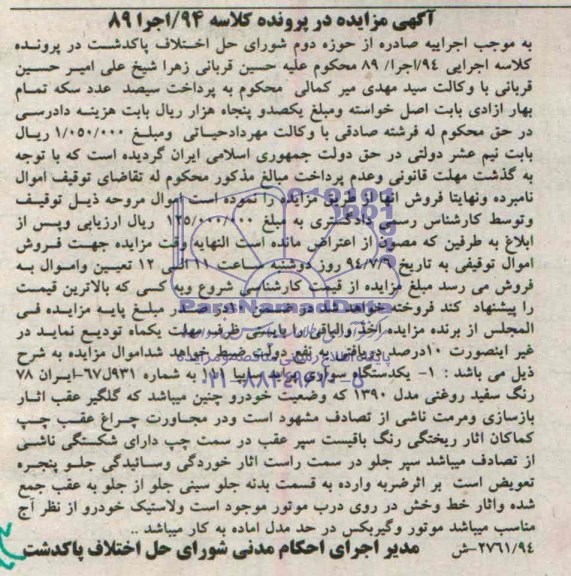 آگهی مزایده در پرونده کلاسه ۹۴/اجرا ۸۹
به موجب اجراییه صادره از حوزه دوم شورای حل اختلاف پاکدشت در پرونده
کلاسه اجرایی ۹۴/اجرا/ ۸۹ محکوم علیه حسین قربانی زهرا شیخ علی امیر حسین
قربانی با وکالت سید مهدی میر کمالی محکوم به پرداخت سیصد عدد سکه تمام
بهار ازادی بابت اصل خواسته ومبلغ یکصدو پنجاه هزار ریال بابت هزینه دادرسی
در حق محکوم له فرشته صادقی با وکالت مهردادحیاتی ومبلغ ۱/۰۵۰/۰۰۰ ریال
بابت نیم عشر دولتی در حق دولت جمهوری اسلامی ایران گردیده است که با توجه
به گذشت مهلت قانونی وعدم پرداخت مبالغ مذکور محکوم له تقاضای توقیف اموال
نامبرده ونهایتا فروش انها از طریق مزایده را نموده است اموال مروحه ذیل توقیف
وتوسط کارشناس رسمی دادگستری به مبلغ ۱۲۵/۰۰۰/۰۰۰ ریال ارزیابی وپس از
ابلاغ به طرفین که مصون از اعتراض مانده است النهایه وقت مزایده جهت فروش
اموال توقیفی به تاریخ ۹۴/۷/۶ روز دوشنبه ساعت ۱۱ الی ۱۲ تعیین واموال به
فروش می رسد مبلغ مزایده از قیمت کارشناسی شروع وبه کسی که بالاترین قیمت
را پیشنهاد کند فروخته خواهد شد و ضمنا ۱۰درصد در مبلغ پایه مزایده فی
المجلس از برنده مزایده اخذ والباقی را بایستی ظرف مهلت یکماه تودیع نماید در
غیر اینصورت ۱۰درصد دریافتی به نفع دولت ضبط خواهد شداموال مزایده به شرح
ذیل می باشد : ۱- یکدستگاه سواری پراید سایپا ۱۱۱ به شماره ۹۳۱ل۶۷-ایران ۷۸
رنگ سفید روغنی مدل ۱۳۹۰ که وضعیت خودرو چنین میباشد که گلگیر عقب اثار
بازسازی ومرمت ناشی از تصادف مشهود است ودر مجاورت چراغ عقب چپ
کماکان اثار ریختگی رنگ باقیست سپر عقب در سمت چپ دارای شکستگی ناشی
از تصادف میباشد سپر جلو در سمت راست اثار خوردگی وسائیدگی جلو پنجره
تعویض است بر اثرضربه وارده به قسمت بدنه جلو سینی جلو از جلو به عقب جمع
شده واثار خط وخش در روی درب موتور موجود است ولاستیک خودرو از نظر آج
مناسب میباشد موتور وگیربکس در حد مدل اماده به کار میباشد ..
۲۷۶۱/۹۴-ش مدیر اجرای احکام مدنی شورای حل اختلاف پاکدشت
ParsNamadData
۰۲۱-۸۸۳۴۹۶۷۰-۵